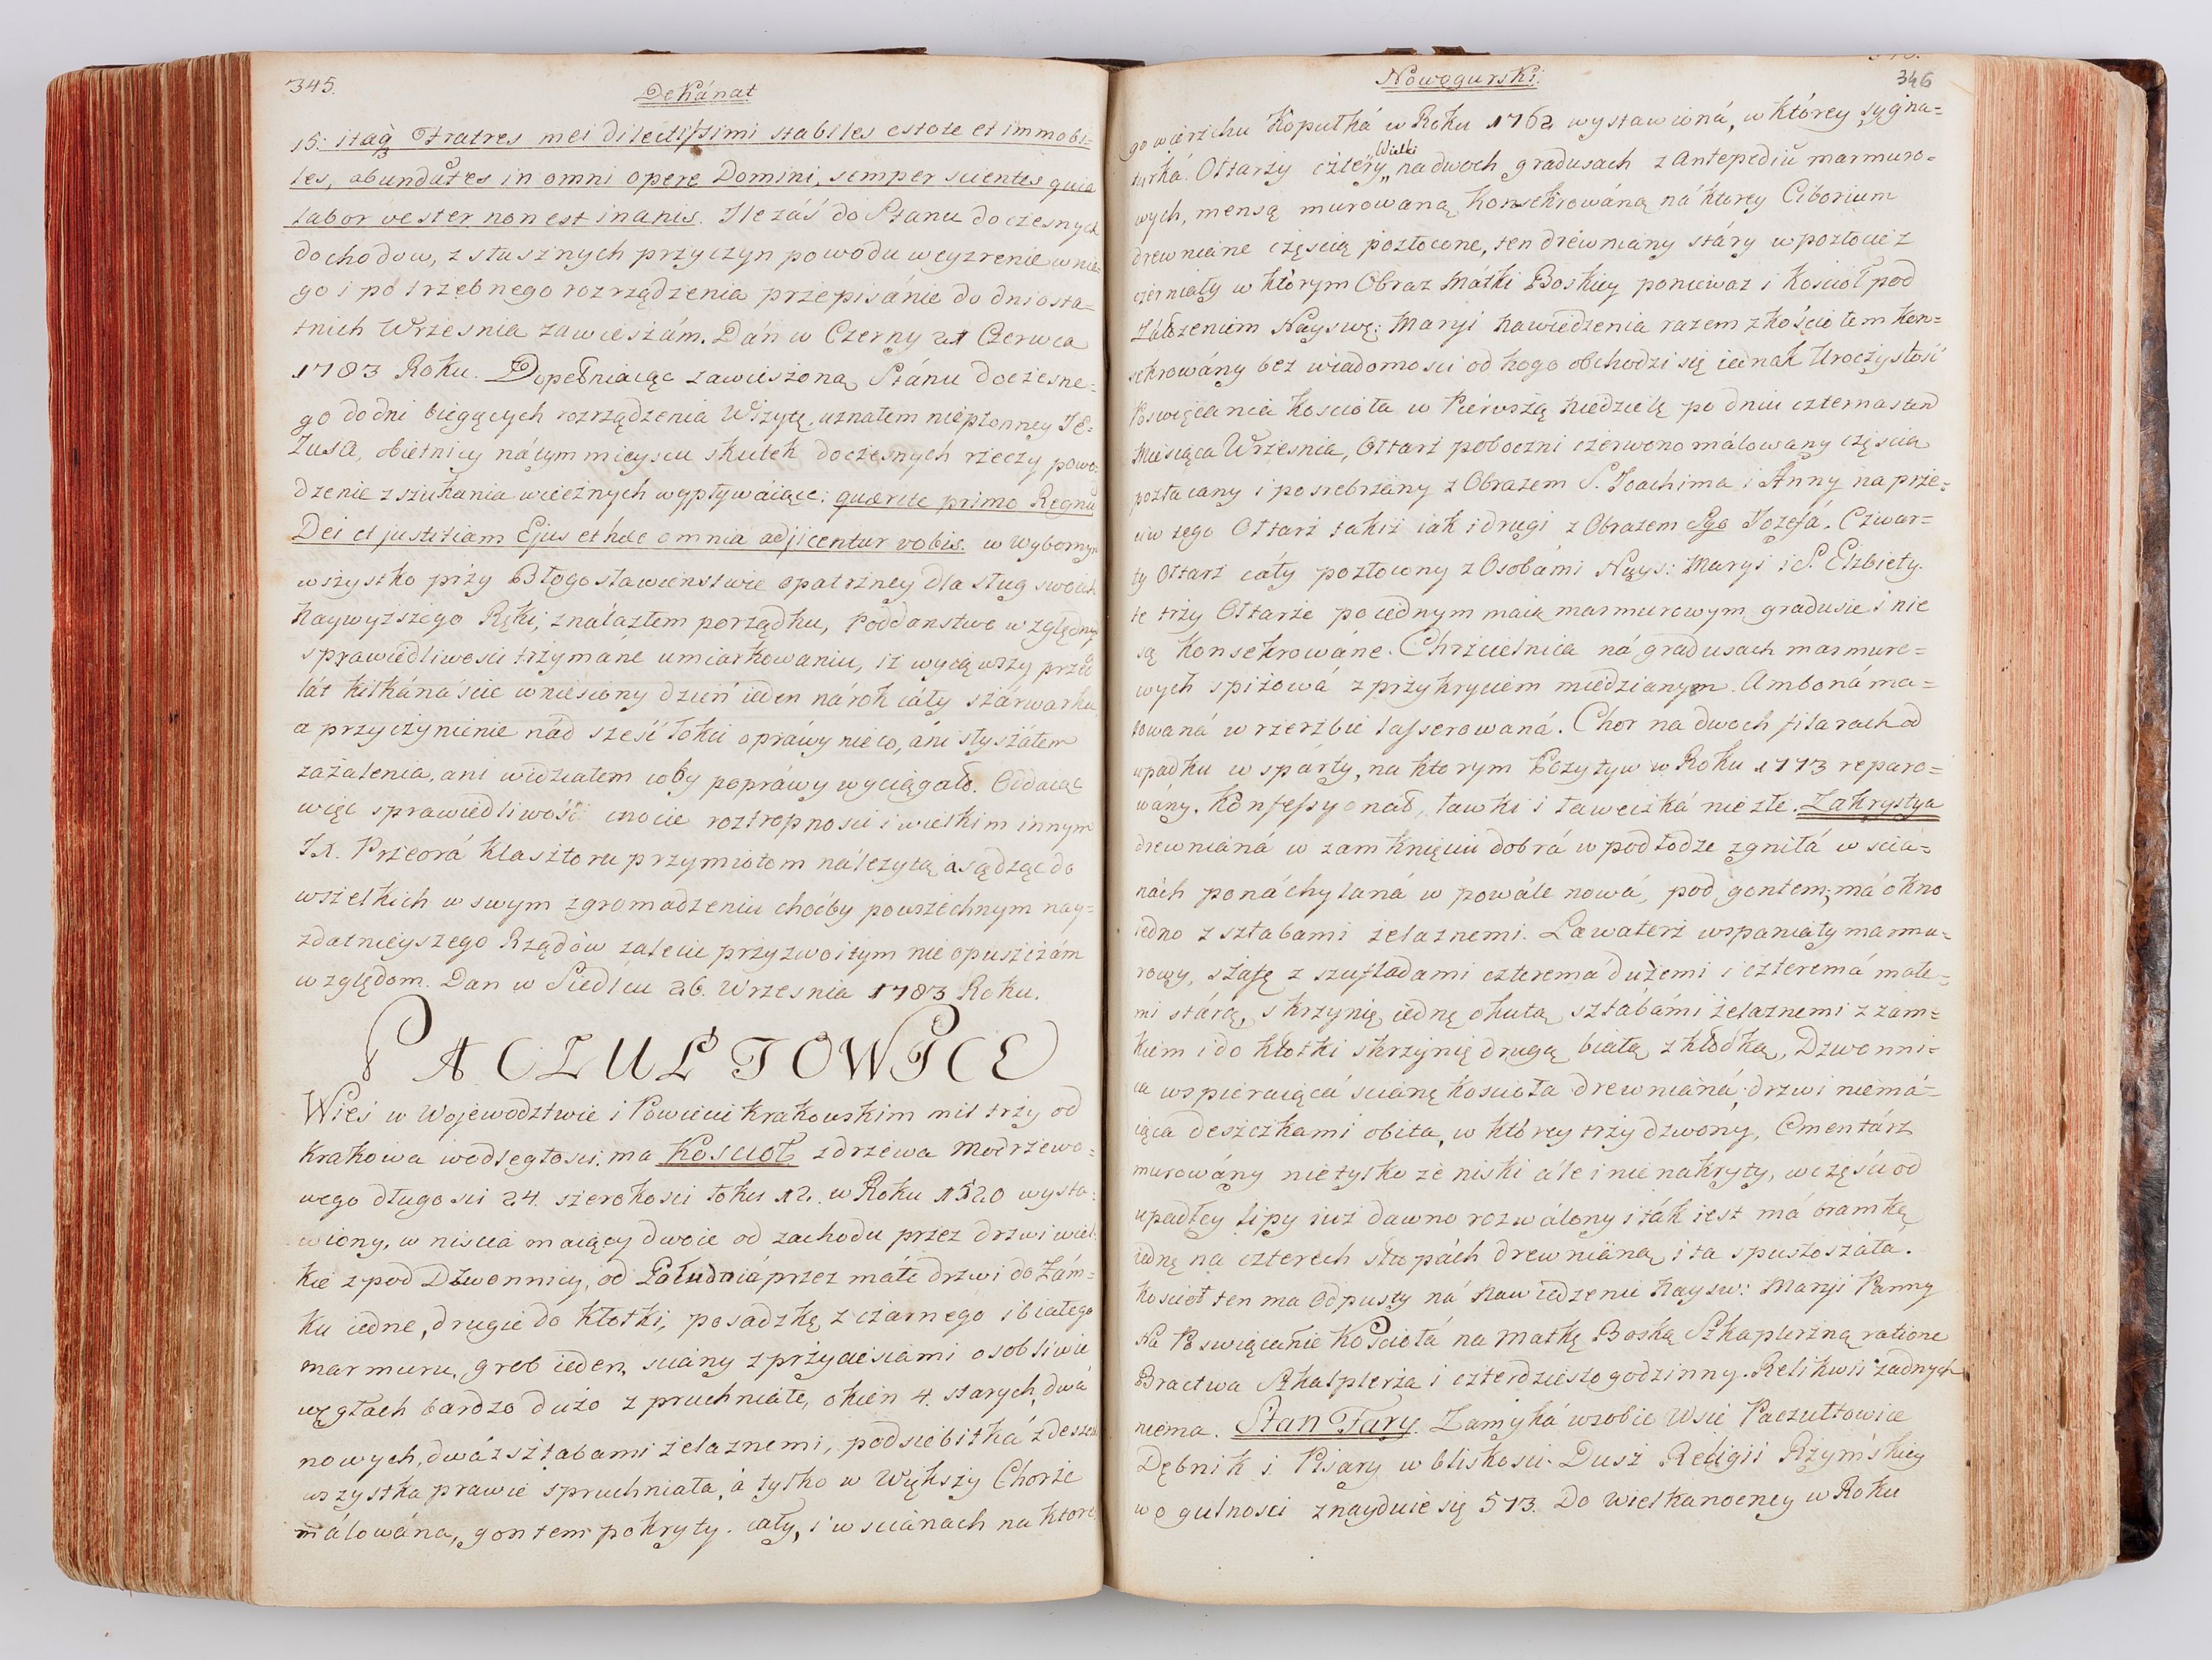 345.
Dekánat
15: itaq Fratres mei dilectissimi stabiles estote et immobi=
les, abundates in omni opere Domini, semper scientes quia
labor vester non est inanis. Ile zaś do Stanu doczesnych
dochodow, z słusznych przyczyn powodu weyzrenie w nie=
go i potrzebnego rozrządzenia przepisánie do dni osta=
tnich Wrzesnia zawieszám. Dań w Czerny 21 Czerwca
1783 Roku. Dopełniaiąc zawieszoną Stánu doczesne=
go do dni biegących rozrządzenia Wizytę, uznałem niepłonney JE=
ZUSA, obietnicy ná tym mieyscu skutek doczesnych rzeczy powo=
dzenie z szukania wiecznych wypływaiące: quærite primo Regnu
Dei et justitiam Ejus et hæc omnia adjicentur vobis. w wybornym
wszystko przy Błogosławieństwie opatrzney dla sług swoich
Naywyższego Ręki, znalazłem porządku, Poddanstwo w zględnym
sprawiedliwosci trzymane umiarkowaniu, iż wyiąwszy przed
lát kilkánaście wniesiony dzień ieden ná rok cáły szárwarku,
a przyczynienie nád sześć łokci oprawy nieco, áni słyszałem
zażalenia, ani widziałem coby popráwy wyciągało. Oddaiąc
więc sprawiedliwość cnocie roztropnosci i wielkim innym
JX. Przeorá Klasztoru przymiotom náleżytą, a sądząc do
wszelkich w swym zgromadzeniu choćby powszechnym nay=
zdatnieyszego Rządow zalecić przyzwoitym nie opuszczám
względom. Dan w Siedlcu 26. Wrzesnia 1783 Roku.
PACZULTOWICE
Wieś w Wojewodztwie i Powiecie Krakowskim mil trzy od
Krakowa wodległosci. ma Koscioł z drzewa Modrzewo=
wego długosci 24. szerokosci łokci 12. w Roku 1520 wysta=
wiony, w nisca maiący dwoie od zachodu przez drzwi wiel=
kie z pod Dzwonnicy, od Południá przez máłe drzwi do Zám=
ku iedne, drugie do kłotki, posadzkę z czarnego i białego
marmuru, grob ieden, sciany z przyciesiami osobliwie
węgłach bardzo dużo z pruchniałe, okien 4. starych, dwá
nowych, dwá z sztabami żelaznemi, podsiebitká z deszek
wszystka prawie spruchniała, á tylko w Większy Chorże
málowána, gontem pokryty. cały, i w scianach na ktore
346
Nowogurski.
go wierzchu Kopułká w Roku 1762 wystawioná, w którey sygna=
turká. Ołtarzy cztery, Wielki na dwoch gradusach z Antepediu marmuro=
wych, mensą murowaną Konsekrowáną ná ktorey Ciborium
drewniane częscią pozłocone, ten drewniany stáry w pozłocie z
czerniały w którym Obraz Mátki Boskiey poniewaz i Kościoł pod
Záłozeniem Nayswę: Maryi Nawiedzenia razem z kościołem Kon=
sekrowány bez wiadomosci od kogo obchodzi się iednak Uroczystość
Poswięcania kościoła w Pierwszą Niedzielę po dniu czternastem
Miesiąca Wrzesnia, Ołtarz poboczni czerwono málowany częscia
pozłacany i posrebrzány z Obrazem S. Joachima i Anny na prze=
ciw tego Ołtarz takiż iak i drugi z Obrazem Sgo Jozefá. Czwar=
ty Ołtarz cáły pozłocony z Osobámi Nays: Maryi i S. Elżbiety.
te trzy Ołtarze po iednym maią marmurowym gradusie i nie
są Konsekrowáne. Chrzcielnica ná gradusach marmuro=
wych spiżowá z przykryciem miedzianym. Amboná ma=
lowaná w rzeźbie lasserowaná. Chor na dwoch filarach od
upadku wspárty, na ktorym Pozytyw w Roku 1773 reparo=
wány. Konfessyonał, ławki i ławeczká nie złe. Zakrystya
drewnianá w zamknięciu dobrá w podłodze zgniłá w sciá=
nách ponáchylaná w powále nowá, pod gontem, má okno
iedno z sztabami żelaznemi. Lawaterz wspaniały marmu=
rowy, szafę z szufladami czteremá dużemi i czteremá máłe=
mi stárą, skrzynię iednę okutą sztabámi żelaznemi z zam=
kiem i do kłotki skrzynię drugą białą z kłodką, Dzwonni=
ca wspieraiącá scianę kościoła drewnianá, drzwi niemá=
iąca deszczkami obita, w którey trzy dzwony, Cmentárz
murowány nie tylko że niski ále i nie nakryty, w części od
upadłey lipy iuż dawno rozwálony i ták iest má bramkę
iednę na czterech słupách drewnianą, i ta spustoszała.
Kościoł ten ma Odpusty ná Nawiedzenie Naysw: Maryi Panny
Na Poswiącanie Kościołá na Matkę Boską Szkaplerzną ratione
Bractwa Szkalplerza i czterdziestogodzinny. Relikwii żadnych
niema. Stan Fary. Zamyká w sobie Wsie Paczułtowice
Dębnik i Pisary w bliskosci. Dusz Religii Rzymskiey
w ogulnosci znayduie się 573. Do Wielkanocney w Roku